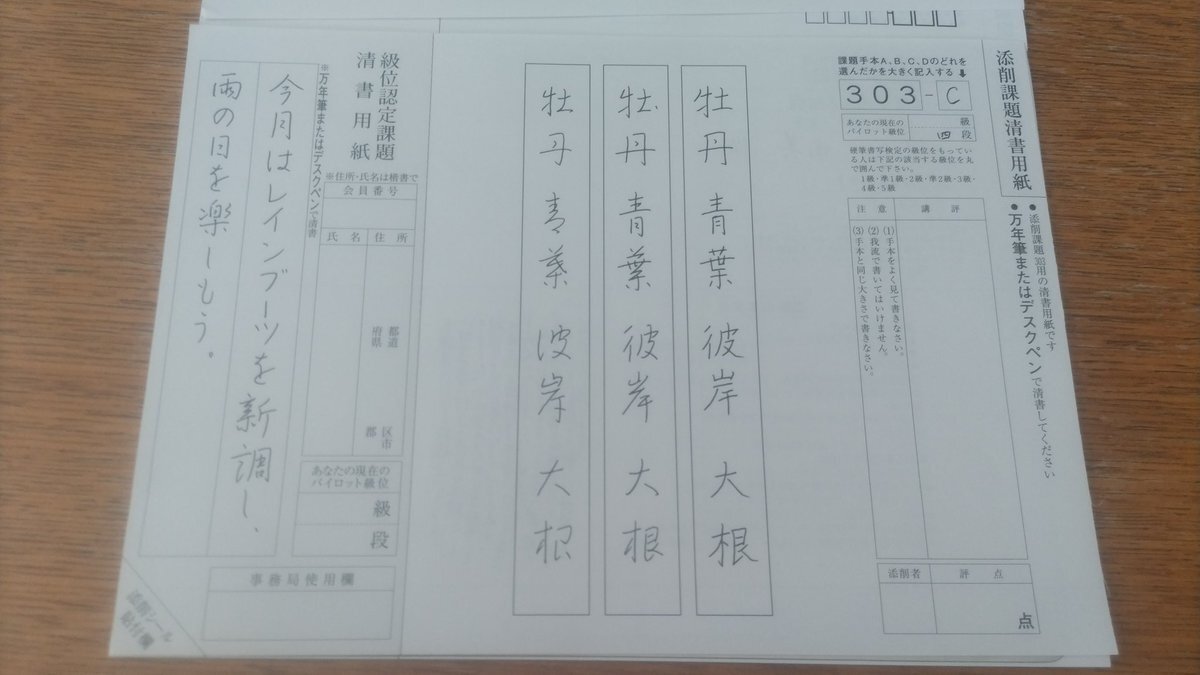 添削課題清書用紙
● 添削課題303用の清書用紙です
● 万年筆またはデスクペンで清書してください
課題手本A、B、C、Dのどれを
選んだかを大きく記入する↓
303-C
あなたの現在の
パイロット級位
級
四段
硬筆書写検定の級位をもってい
る人は下記の該当する級位を丸
で囲んで下さい。
1級・準1級・2級・準2級・3級・
4級・5級
講評
注意
(1)手本をよく見て書きなさい。
(2)我流で書いてはいけません。
(3)手本と同じ大きさで書きなさい。
添削者
評点
点
牡丹 青葉 彼岸 大根
牡丹 青葉 彼岸 大根
牡丹 青葉 彼岸 大根
級位認定課題
清書用紙
※住所・氏名は楷書で
会員番号
氏名
住所
都道
府県
区市
郡
あなたの現在の
パイロット級位
級
段
事務局使用欄
※万年筆またはデスクペンで清書
今月はレインブーツを新調し、
雨の日を楽しもう。
添削シール
貼付欄